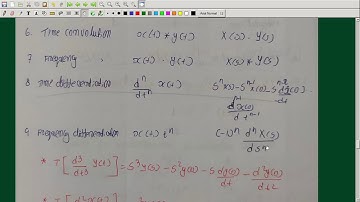 6. Time convolution x(t) * y(t) X(s) . Y(s)
7 Frequency x(t) . y(t) X(s) * Y(s)
8 Time differentiation d^n/dt^n x(t) s^n X(s) - s^n-1 x(0) - s^n-2 dx(0)/dt
d^n-1 x(0)/dt^n-1
9 Frequency differentiation x(t) t^n (-1)^n d^n X(s)/ds^n
* T[d3/dt3 y(t)] = s^3 y(s) - s^2 y(0) - s dy(0)/dt - d^2y(0)/dt^2